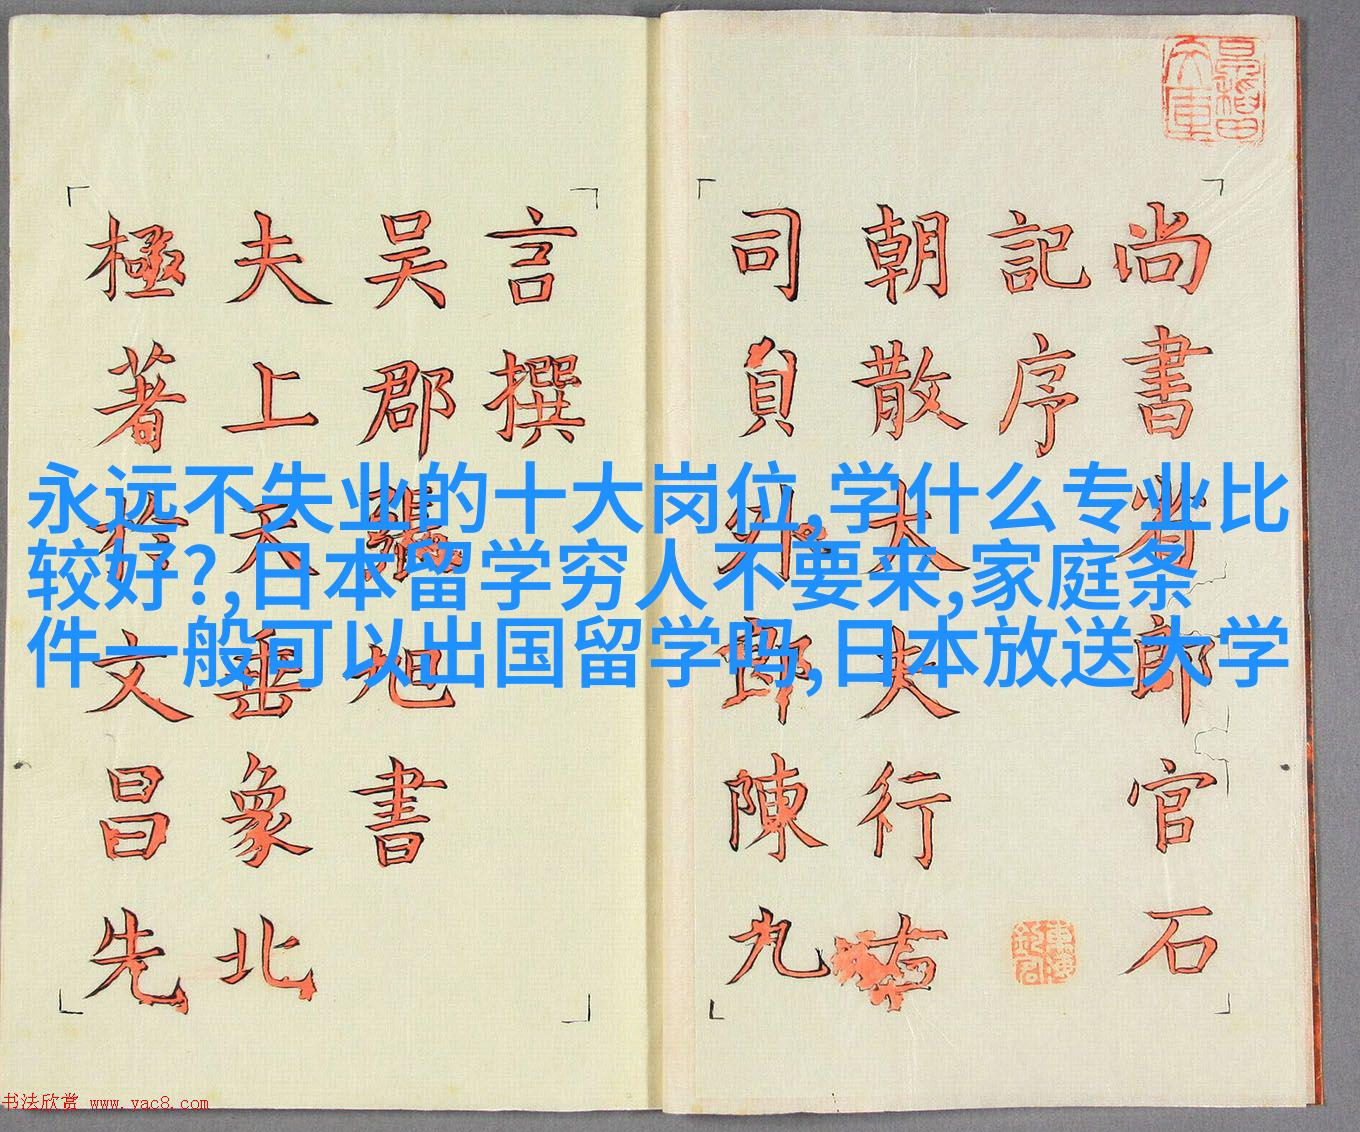 尚書省郎官石
記序
朝散大夫行右
司員外郎陳九
言撰
吴郡張旭書
夫上天垂象北
極著於文昌先
永远不失业的十大岗位,学什么专业比
较好?,日本留学穷人不要来,家庭条
件一般可以出国留学吗,日本放送大学
书法欣赏 www.yac8.com